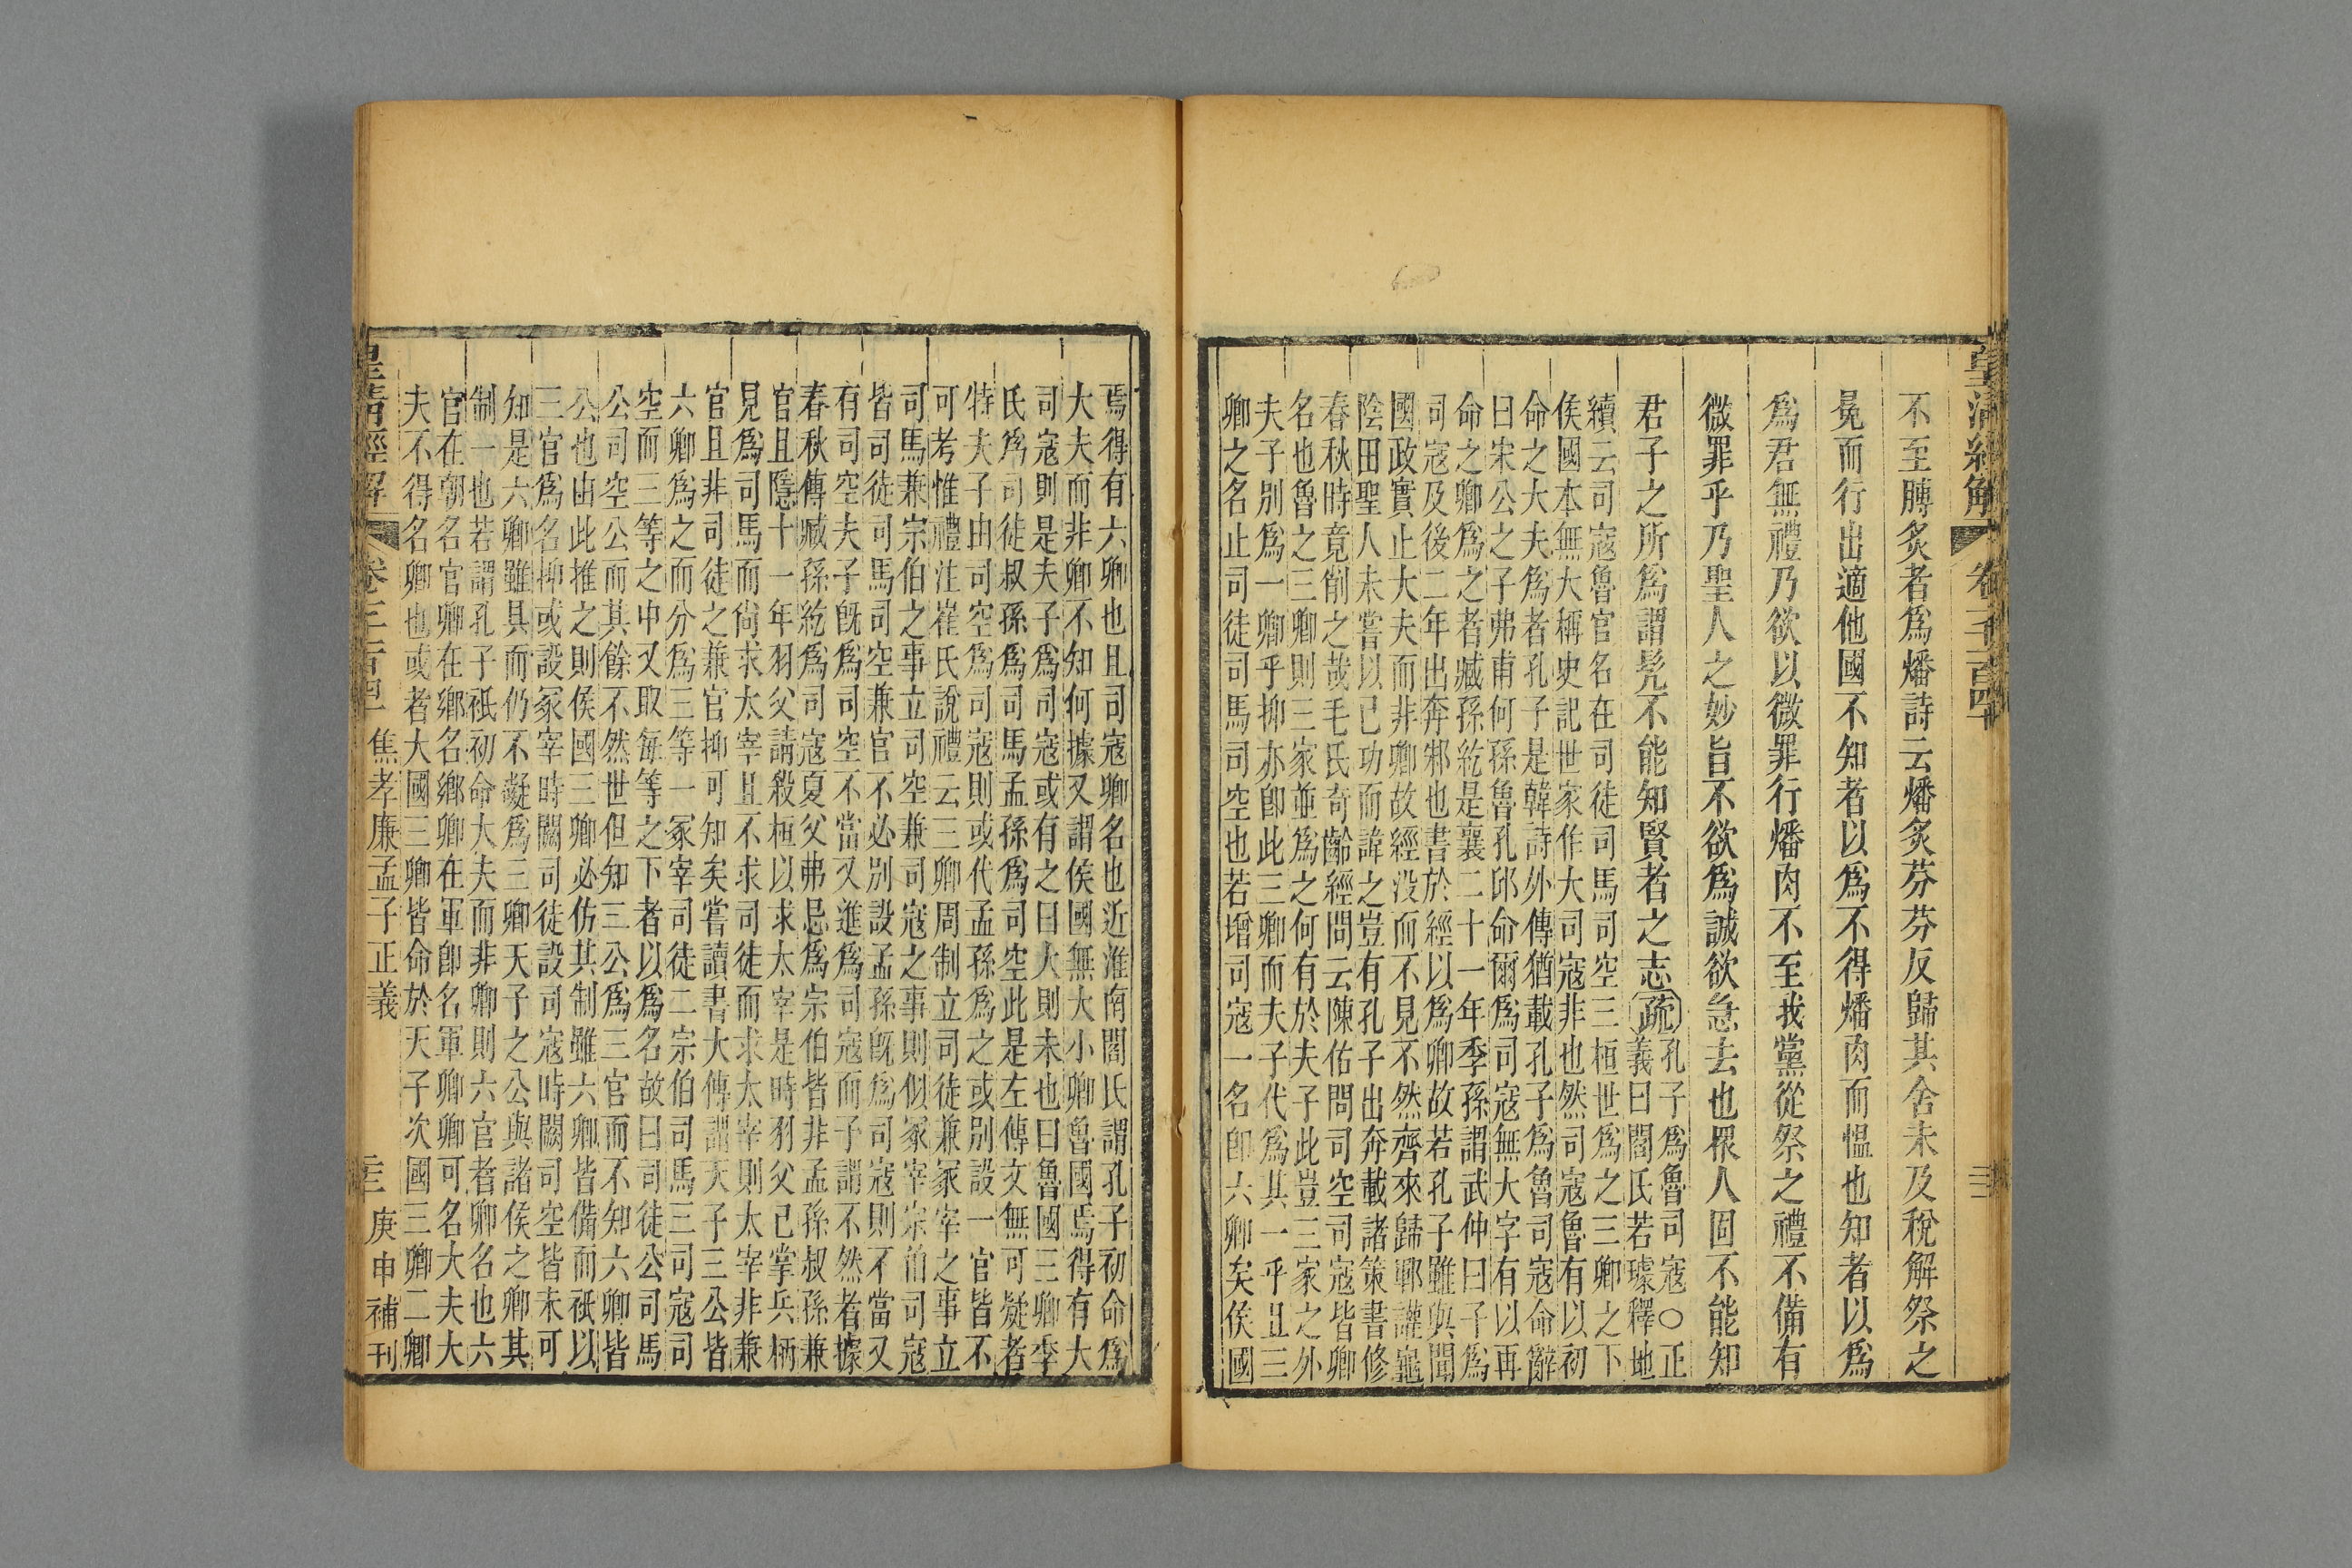 皇清經解
不至膊炙者爲燔詩云燔炙芬芬反歸其舍未及稅解祭之
冕而行出適他國不知者以爲不得燔肉而慍也知者以爲
爲君無禮乃欲以微罪行燔肉不至我黨從祭之禮不備有
微罪乎乃聖人之妙旨不欲爲誠欲急去也衆人固不能知
君子之所爲謂髠不能知賢者之志疏孔子爲魯司寇○正
義曰閻氏若璩釋地
續云司寇魯官名在司徒司馬司空三桓世爲之三卿之下
侯國本無大稱史記世家作大司寇非也然司寇魯有以初
命之大夫爲者孔子是韓詩外傳猶載孔子爲魯司寇命辭
曰宋公之子弗甫何孫魯孔邱命爾爲司寇無大字有以再
命之卿爲之者臧孫紇是襄二十一年季孫謂武仲曰子爲
司寇及後二年出奔邾也書於經以爲卿故若孔子雖與聞
國政實止大夫而非卿故經沒而不見不然齊來歸鄆讙龜
陰田聖人未嘗以已功而諱之豈有孔子出奔載諸策書修
春秋時竟削之哉毛氏奇齡經問云陳佑問司空司寇皆卿
名也魯之三卿則三家並爲之何有於夫子此豈三家之外
夫子別爲一卿乎抑亦卽此三卿而夫子代爲其一乎且三
卿之名止司徒司馬司空也若增司寇一名卽六卿矣侯國
焉得有六卿也且司寇卿名也近淮南閻氏謂孔子初命爲
大夫而非卿不知何據又謂侯國無大小卿魯國焉得有大
司寇則是夫子爲司寇或有之曰大則未也曰魯國三卿季
氏爲司徒叔孫爲司馬孟孫爲司空此是左傳文無可疑者
特夫子由司空爲司寇則或代孟孫爲之或別設一官皆不
可考惟禮注崔氏說禮云三卿周制立司徒兼冢宰之事立
司馬兼宗伯之事立司空兼司寇之事則似冢宰宗伯司寇
皆司徒司馬司空兼官不必別設孟孫旣爲司寇則不當又
有司空夫子旣爲司空不當又進爲司寇而子謂不然者據
春秋傳臧孫紇爲司寇夏父弗忌爲宗伯皆非孟孫叔孫兼
官且隱十一年羽父請殺桓以求太宰是時羽父已掌兵柄
見爲司馬而尙求太宰且不求司徒而求太宰則太宰非兼
官且非司徒之兼官抑可知矣嘗讀書大傳謂天子三公皆
六卿爲之而分爲三等一冢宰司徒二宗伯司馬三司寇司
空而三等之中又取每等之下者以爲名故曰司徒公司馬
公司空公而其餘不然世但知三公爲三官而不知六卿皆
公也由此推之則侯國三卿必仿其制雖六卿皆備而祇以
三官爲名抑或設冢宰時闕司徒設司寇時闕司空皆未可
知是六卿雖具而仍不礙爲三卿天子之公與諸侯之卿其
制一也若謂孔子祇初命大夫而非卿則六官者卿名也六
官在朝名官卿在鄉名鄕卿在軍卽名軍卿卿可名大夫大
夫不得名卿也或者大國三卿皆命於天子次國三卿二卿
皇清經解 卷 焦孝廉孟子正義 庚申補刊